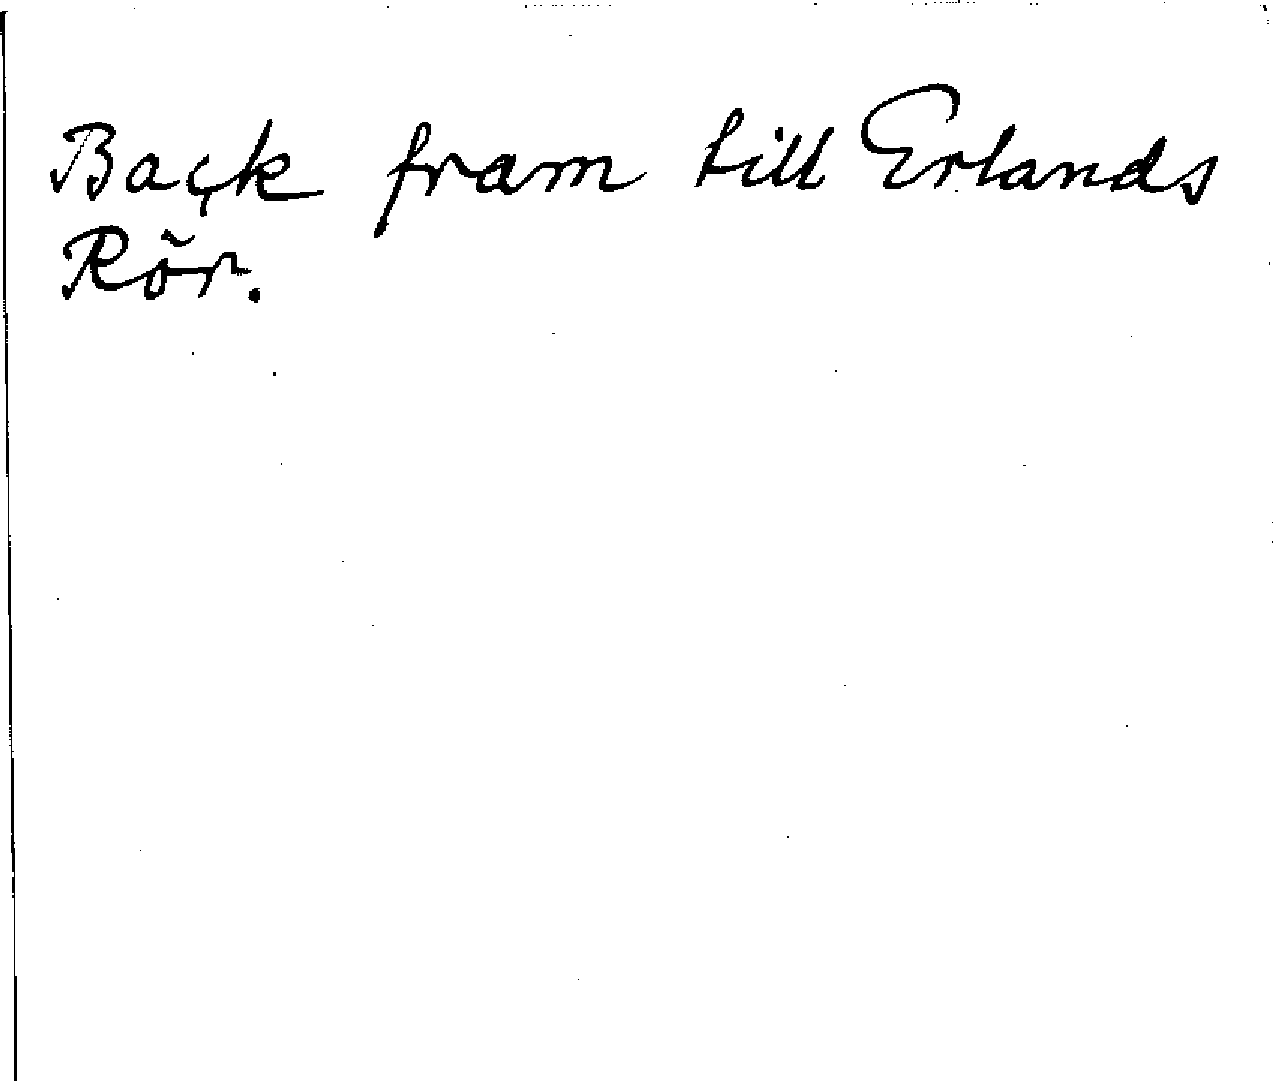 Back fram till Erlands
Rör.